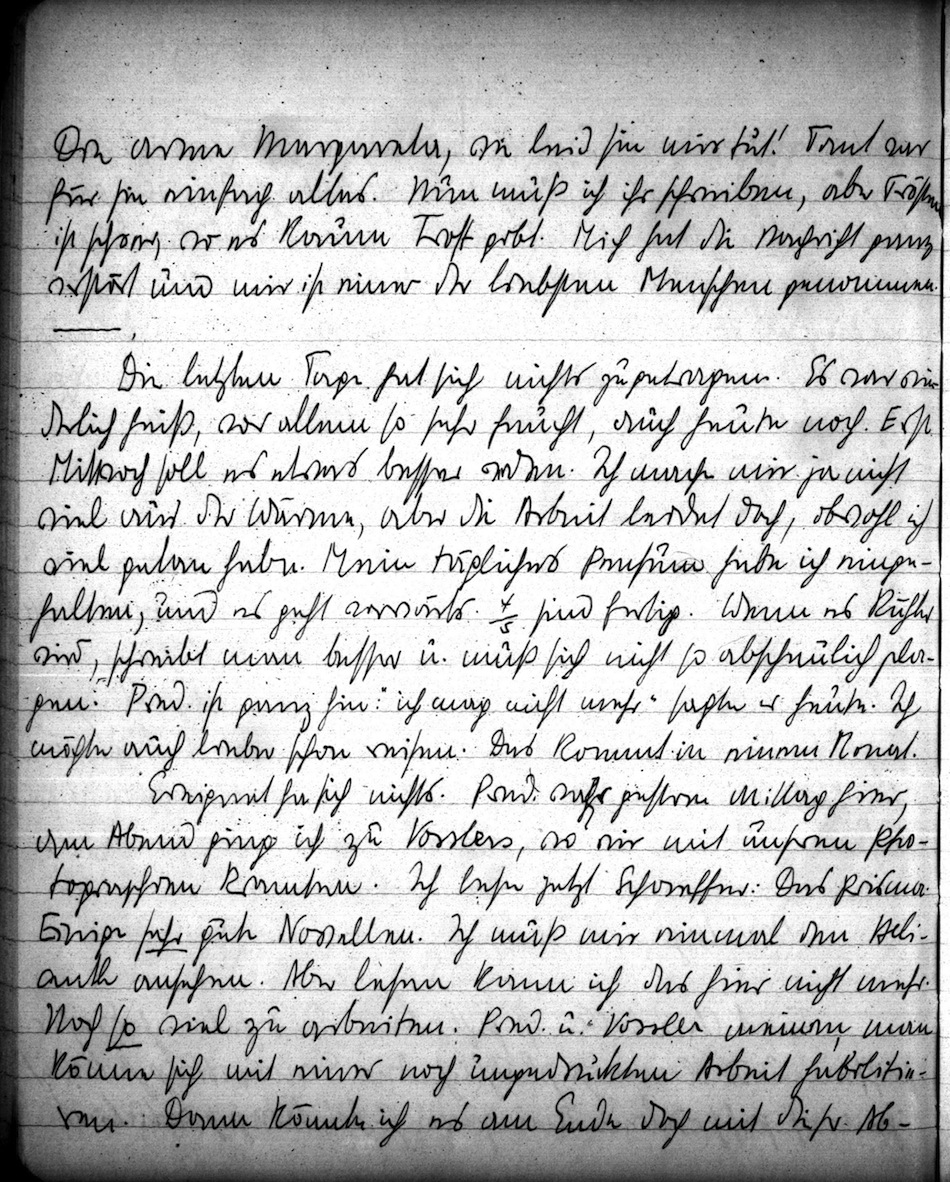 Die arme Margareta, wie leid sie mir tut! Tant war
für sie einfach alles. Nun muß ich ihr schreiben, aber Trösten
ist schwer, wo es kaum Trost gibt. Mich hat die Nachricht ganz
verstört und mir ist einer der liebsten Menschen genommen.
Die letzten Tage hat sich nichts zugetragen. Es war wie-
derlich heiß, vor allem so sehr feucht, auch heute noch. Erst
Mittwoch soll es etwas besser werden. Ich mache mir ja nicht
viel aus der Wärme, aber die Arbeit leidet doch, obwohl ich
viel getan habe. Mein tägliches Pensum habe ich einge-
halten, und es geht vorwärts. 4/5 sind fertig. Wenn es kühler
wird, schreibt man besser u. muß sich nicht so abscheulich pla-
gen. Pred. ist ganz hin: "ich mag nicht mehr" sagte er heute. Ich
möchte auch lieber schon reisen. Das kommt in einem Monat.
Ereignet hat sich nichts. Pred. war gestern Mittag hier,
am Abend ging ich zu Vosslers, wo wir mit unseren Pho-
tographien kramten. Ich lese jetzt Schaeffer: Das Prisma.
Einige sehr gute Novellen. Ich muß mir einmal den Heli-
anth ansehen. Aber lesen kann ich das hier nicht mehr.
Noch so viel zu arbeiten. Pred. u. Vossler meinen, man
könne sich mit einer noch ungedruckten Arbeit habilitie-
ren. Dann könnte ich es am Ende doch mit dieser Ab-